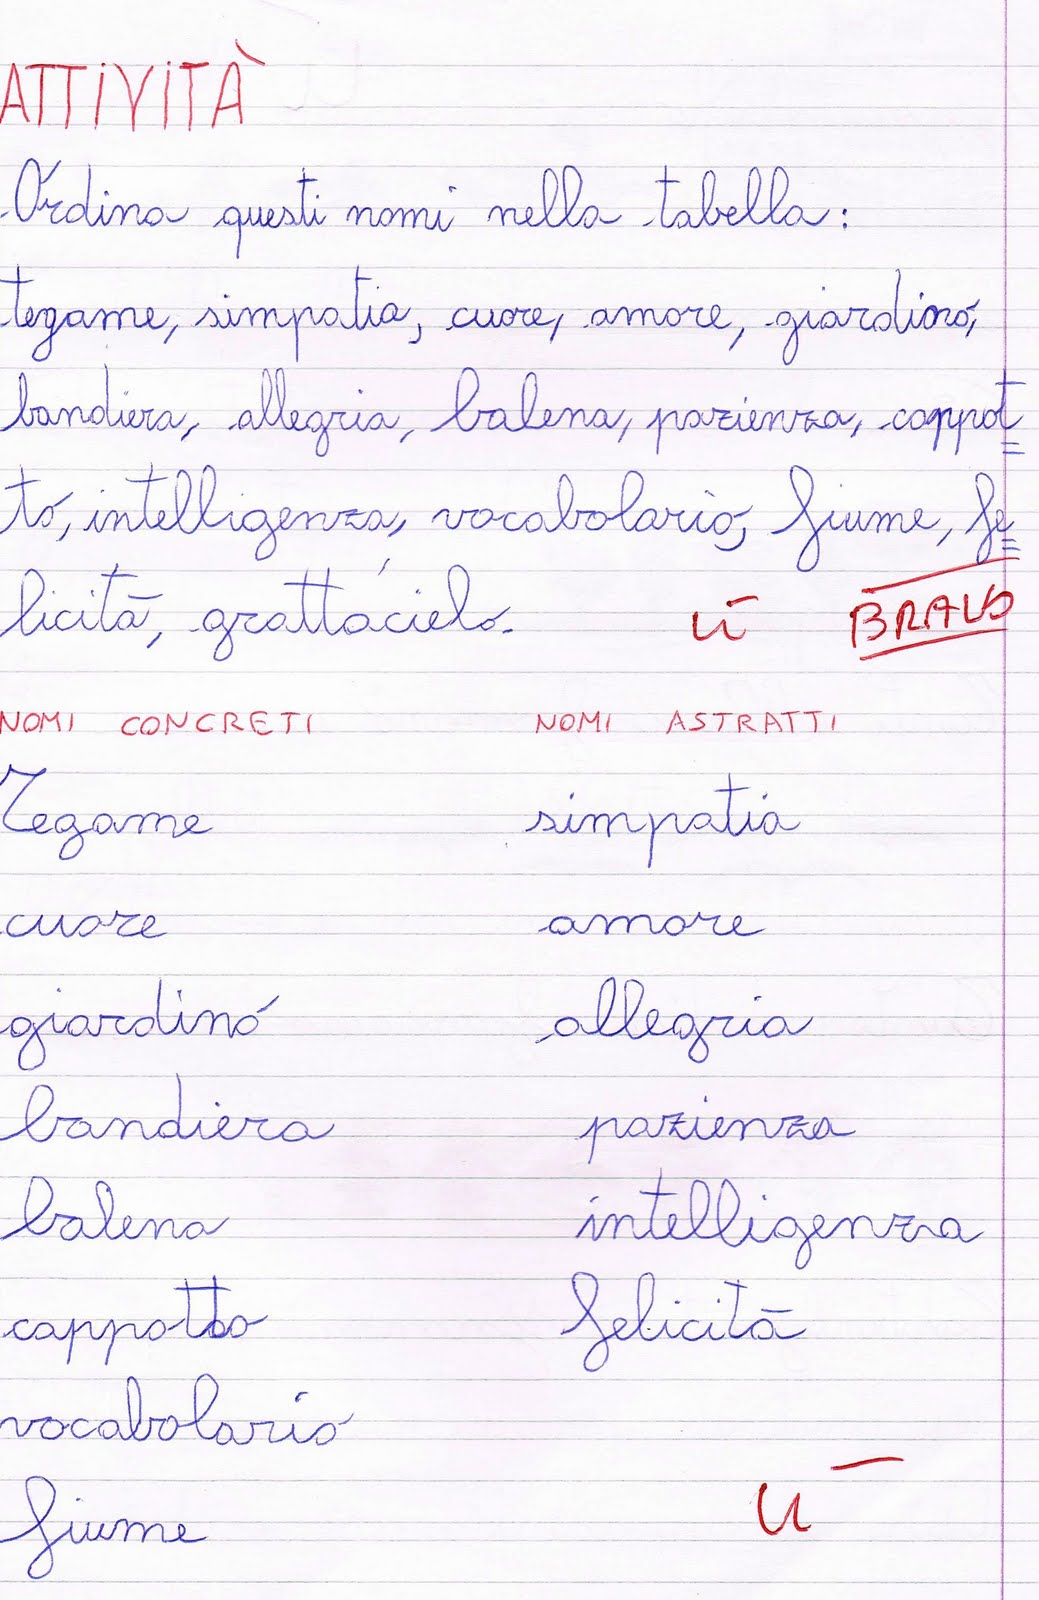 ATTIVITÀ
Ordina questi nomi nella tabella:
tegame, simpatia, cuore, amore, giardino,
bandiera, allegria, balena, pazienza, cappot=
to, intelligenza, vocabolario, fiume, fe=
licità, grattacielo.
BRAVO
NOMI CONCRETI NOMI ASTRATTI
Tegame simpatia
cuore amore
giardino allegria
bandiera pazienza
balena intelligenza
cappotto felicità
vocabolario
fiume